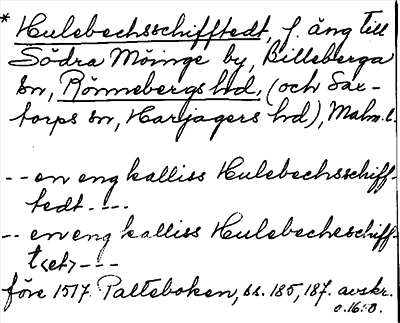 * Hulebechsschifftedt, f. äng till
Södra Möinge by, Billeberga
sn, Rönnebergs hd, (och Sax-
torps sn, Harjagers hd), Malm. l.
-- en eng kalliss Hulebechsschiff-
tedt ----
-- en eng kalliss Hulebecheschiff-
t<et> ---
före 1517 Palteboken, ss. 185, 187. avskr.
o. 16:0.